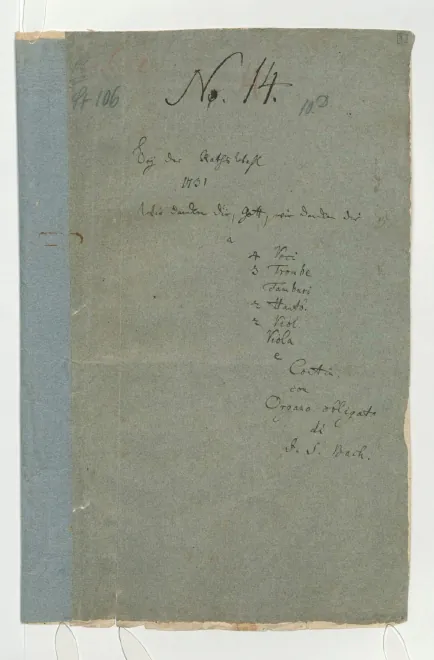 St 106
No. 14.
Bey der Rathswahl
1731
Wir danken dir, Gott, wir danken dir
a
4 Voci
3 Trombe
Tamburi
2 Hautb.
2 Viol
Viola
e
Contin.
con
Organo obligato
di
J. S. Bach.